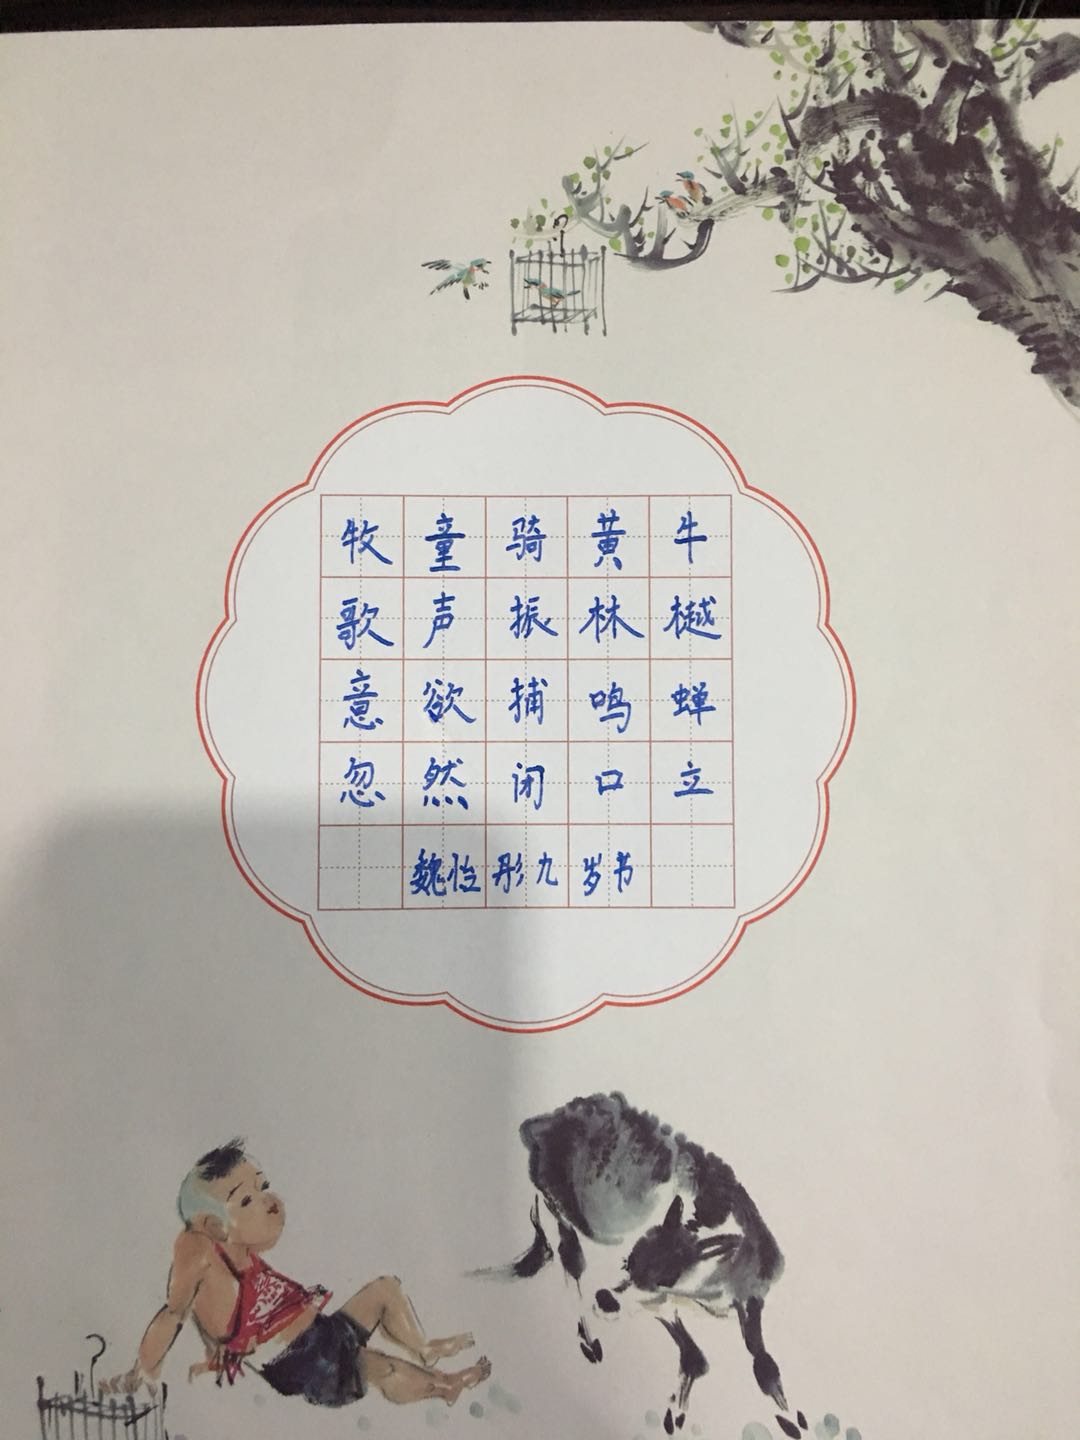 牧童骑黄牛
歌声振林樾
意欲捕鸣蝉
忽然闭口立
魏怡彤九岁书